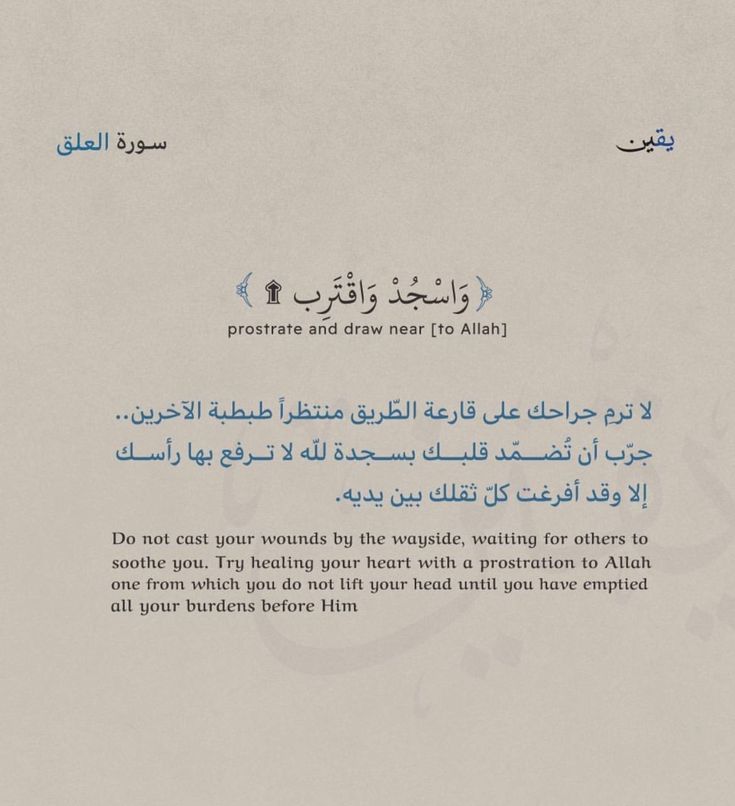 يقين
سورة العلق
﴿وَاسْجُدْ وَاقْتَرِب ۩﴾
prostrate and draw near [to Allah]
لا ترمِ جراحك على قارعة الطّريق منتظراً طبطبة الآخرين..
جرّب أن تُضـــمّد قلبــك بســجدة للّه لا تــرفع بها رأســك
إلا وقد أفرغت كلّ ثقلك بين يديه.
Do not cast your wounds by the wayside, waiting for others to
soothe you. Try healing your heart with a prostration to Allah
one from which you do not lift your head until you have emptied
all your burdens before Him